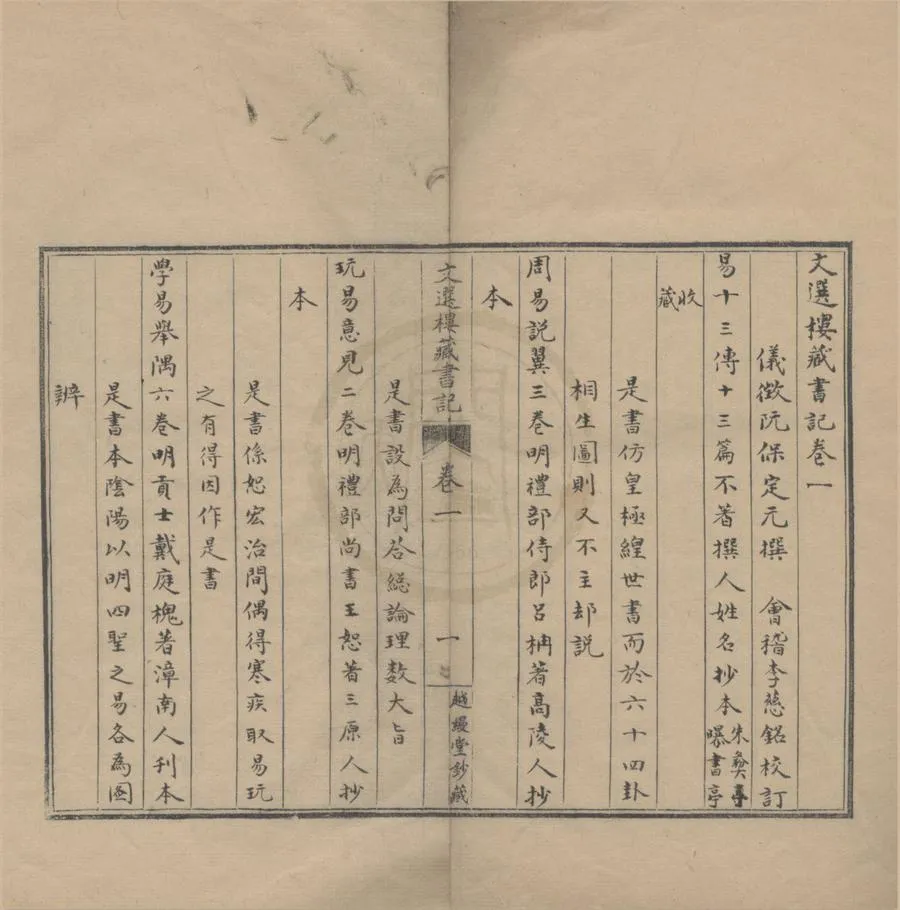 文選樓藏書記卷一
儀徵阮保定元撰 會稽李慈銘校訂
易十三傳十三篇不著撰人姓名抄本朱彝尊曝書亭
收藏
是書仿皇極經世書而於六十四卦
相生圖則又不主却説
周易説翼三卷明禮部侍郎呂柟著高陵人抄
本
文選樓藏書記 卷一 一 越縵堂鈔藏
是書設為問答總論理數大旨
玩易意見二卷明禮部尚書王恕著三原人抄
本
是書係恕宏治間偶得寒疾取易玩
之有得因作是書
學易舉隅六卷明貢士戴庭槐著漳南人刊本
是書本陰陽以明四聖之易各為圖
辨